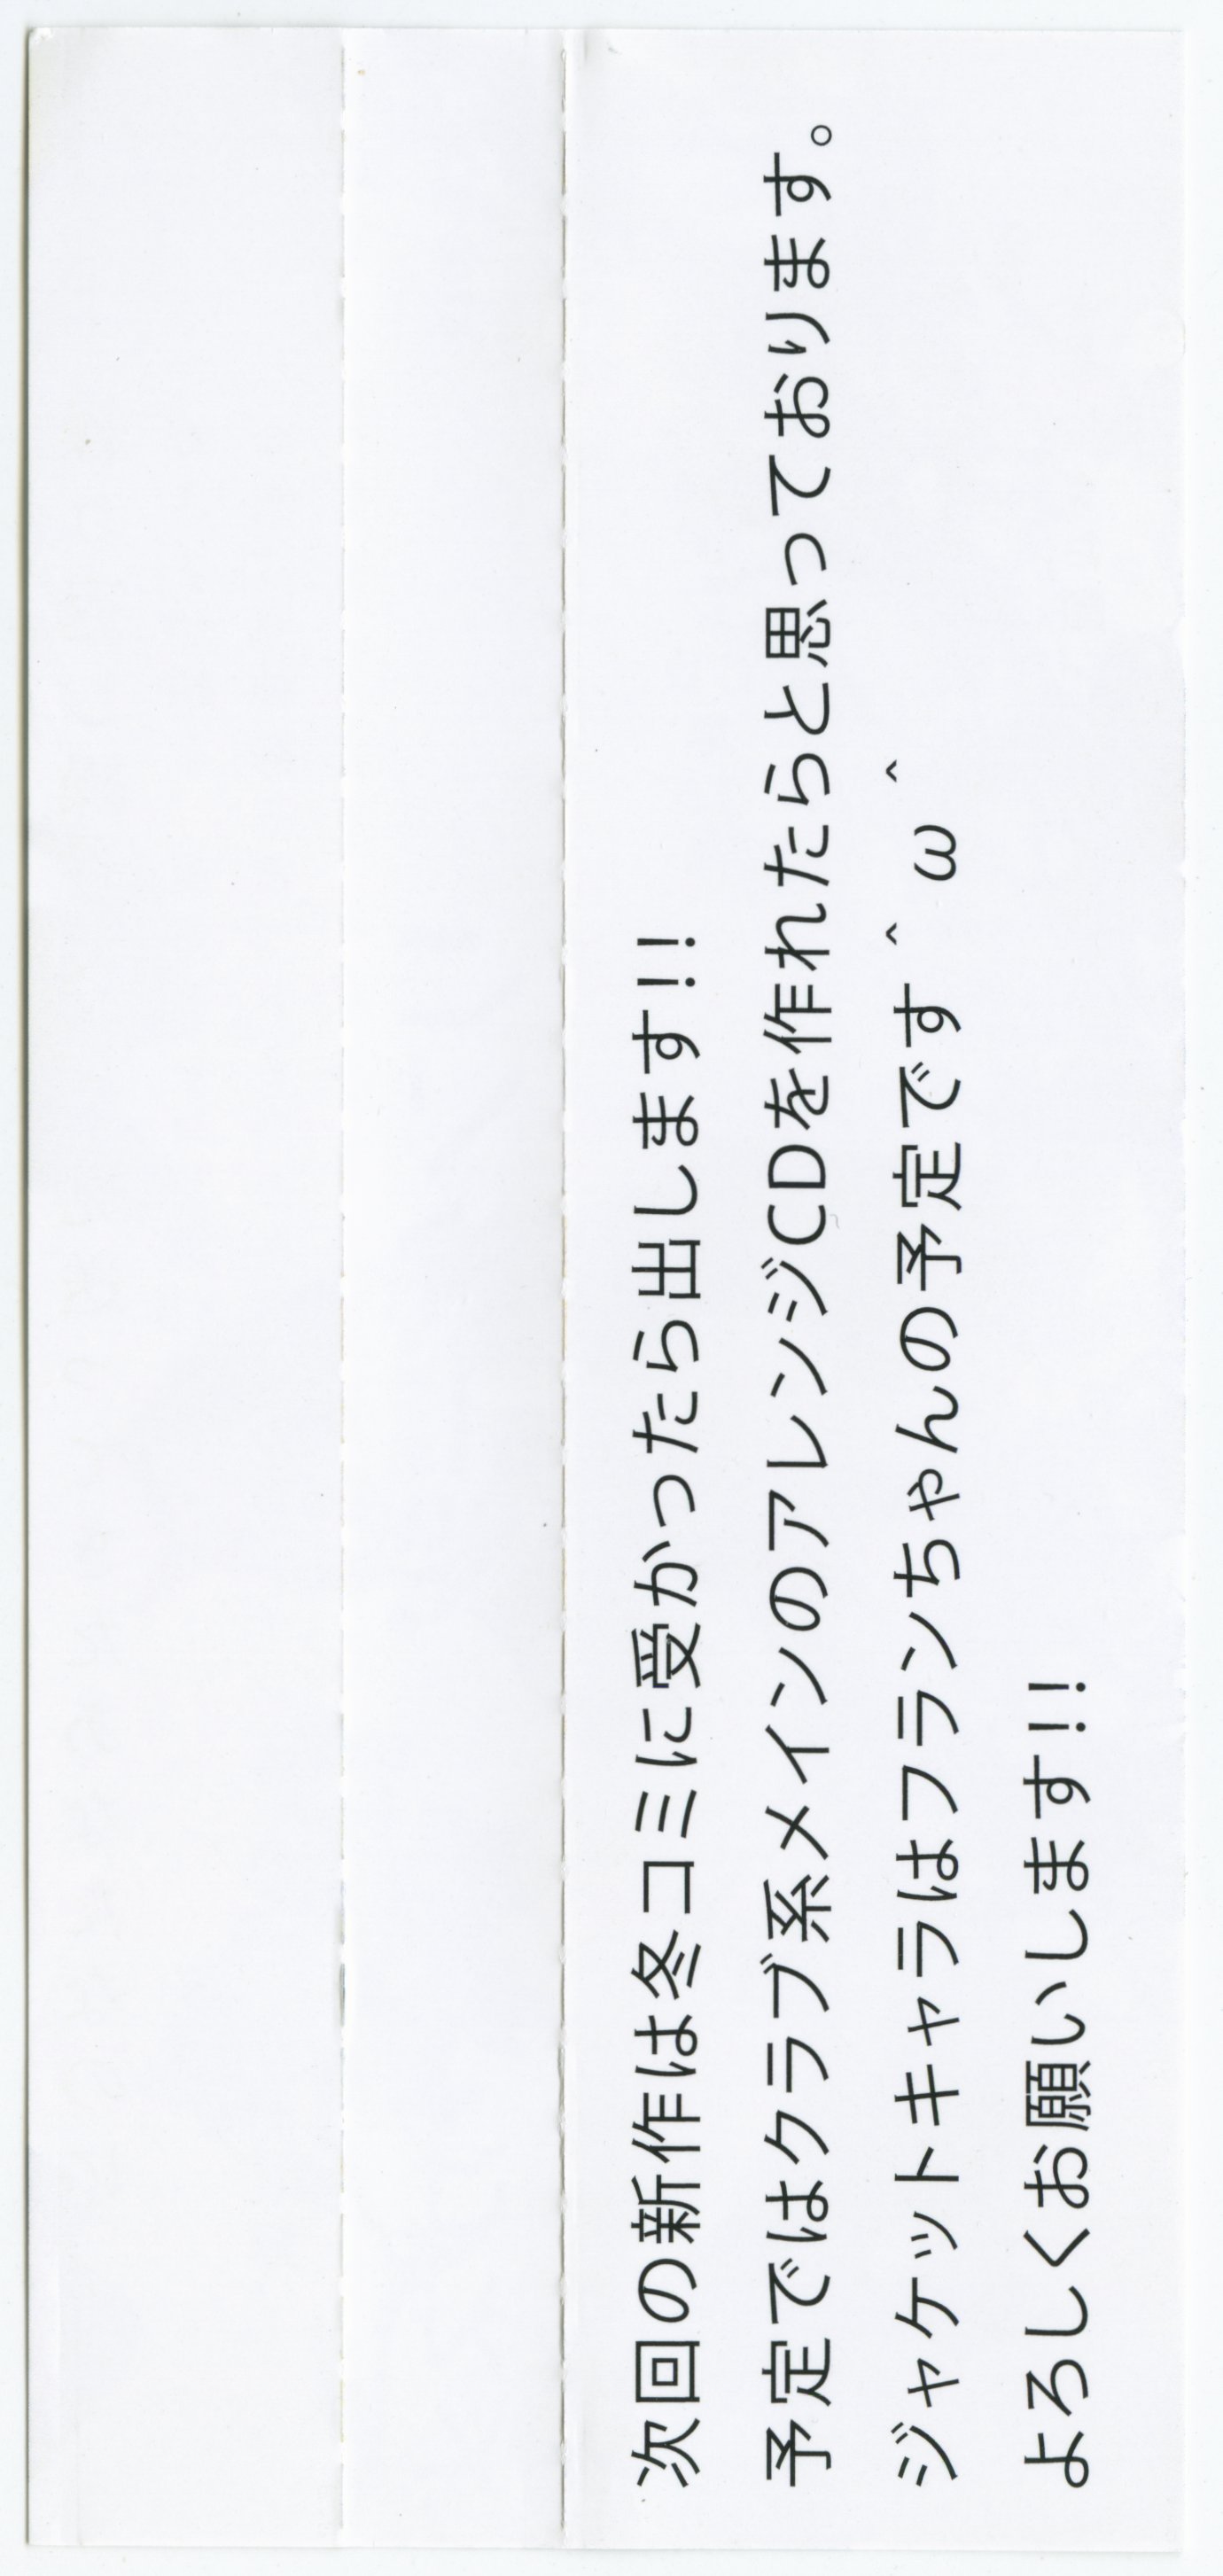 次回の新作は冬コミに受かったら出します!!
予定ではクラブ系メインのアレンジCDを作れたらと思っております。
ジャケットキャラはフランちゃんの予定です＾ω＾
よろしくお願いします!!